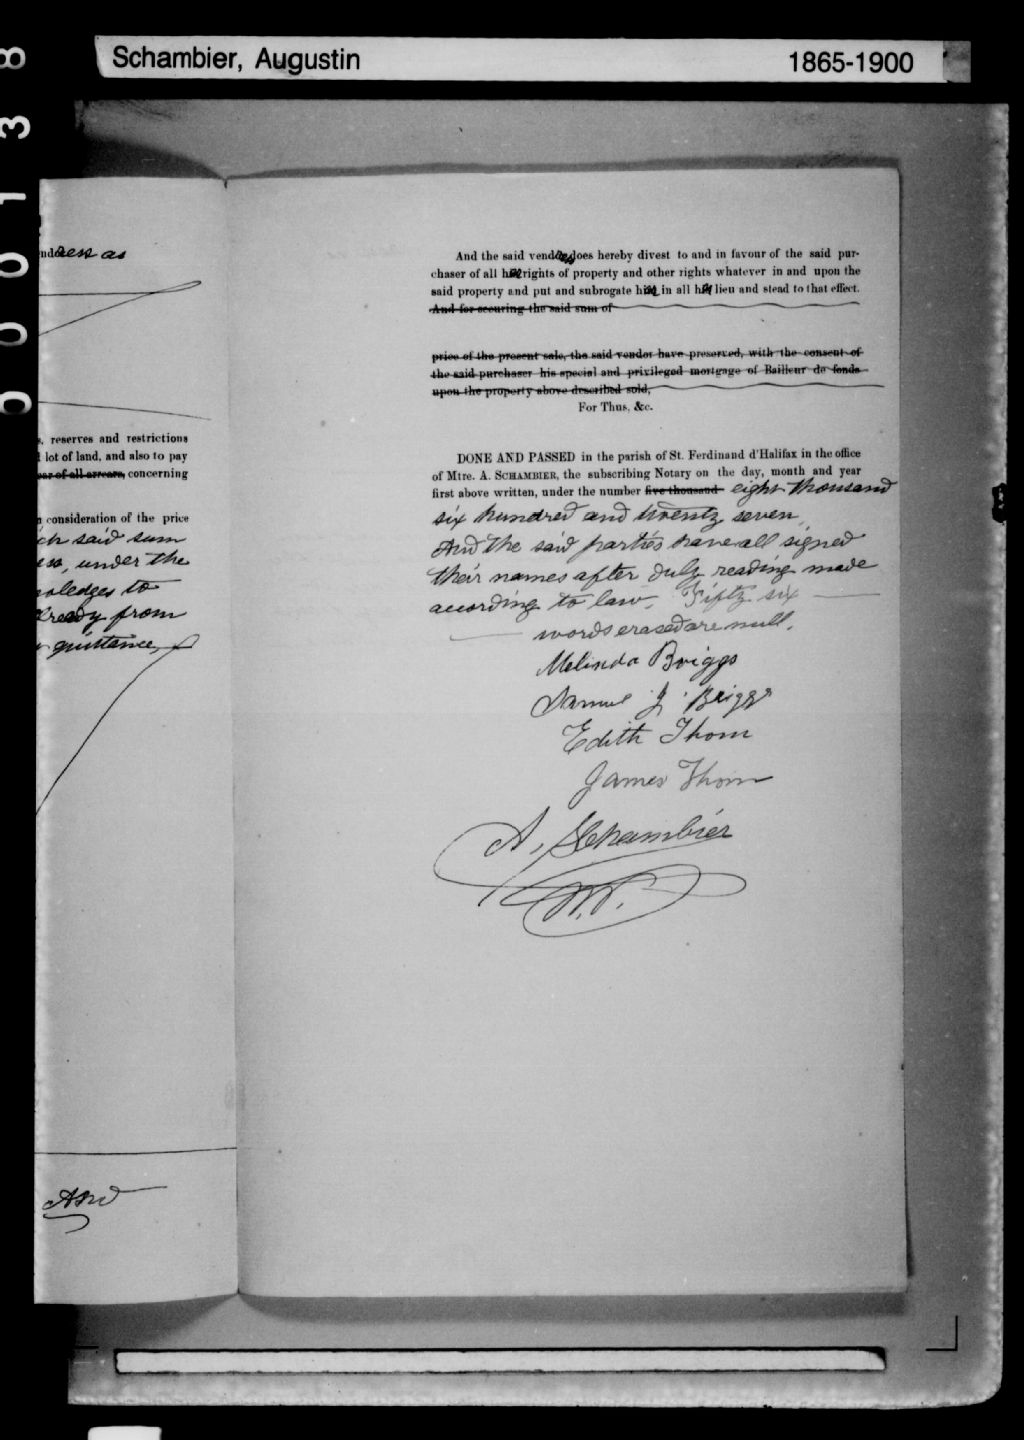 Schambier, Augustin
1865-1900
00138
ress as
reserves and restrictions
lot of land, and also to pay
of all arrears, concerning
consideration of the price
said sum
under the
to
from
quittance,
And
And the said vendoress does hereby divest to and in favour of the said pur-
chaser of all her rights of property and other rights whatever in and upon the
said property and put and subrogate him in all her lieu and stead to that effect.
And for securing the said sum of
price of the present sale, the said vendor have preserved, with the consent of
the said purchaser his special and privileged mortgage of Bailleur de fonds
upon the property above described sold,
For Thus, &c.
DONE AND PASSED in the parish of St. Ferdinand d'Halifax in the office
of Mtre. A. SCHAMBIER, the subscribing Notary on the day, month and year
first above written, under the number five thousand eight thousand
six hundred and twenty seven
And the said parties have all signed
their names after duly reading made
according to law. Fifty six
words erased are null.
Melinda Briggs
Samuel J. Briggs
Edith Thom
James Thom
A, Schambier
N.P.